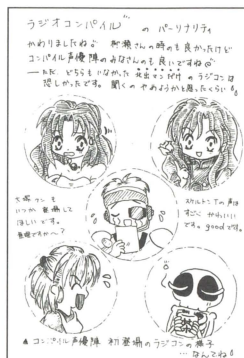 ラジオコンパイル の パーソナリティ
かわりましたね 柳瀬さんの時のも良かったけど
コンパイル声優陣のみなさんのも良いですね
ただ、どちらもいなかった 北出マンだけ のラジコンは
恐しかったです。聞くの やめようかと思ったくらい
大塚サンも
いつか 登場して
ほしいです。
無理ですか〜?
スケルトンTの声は
すごく かわいい
です。good です。
▲コンパイル声優陣 初登場のラジコンの様子
…なんてね